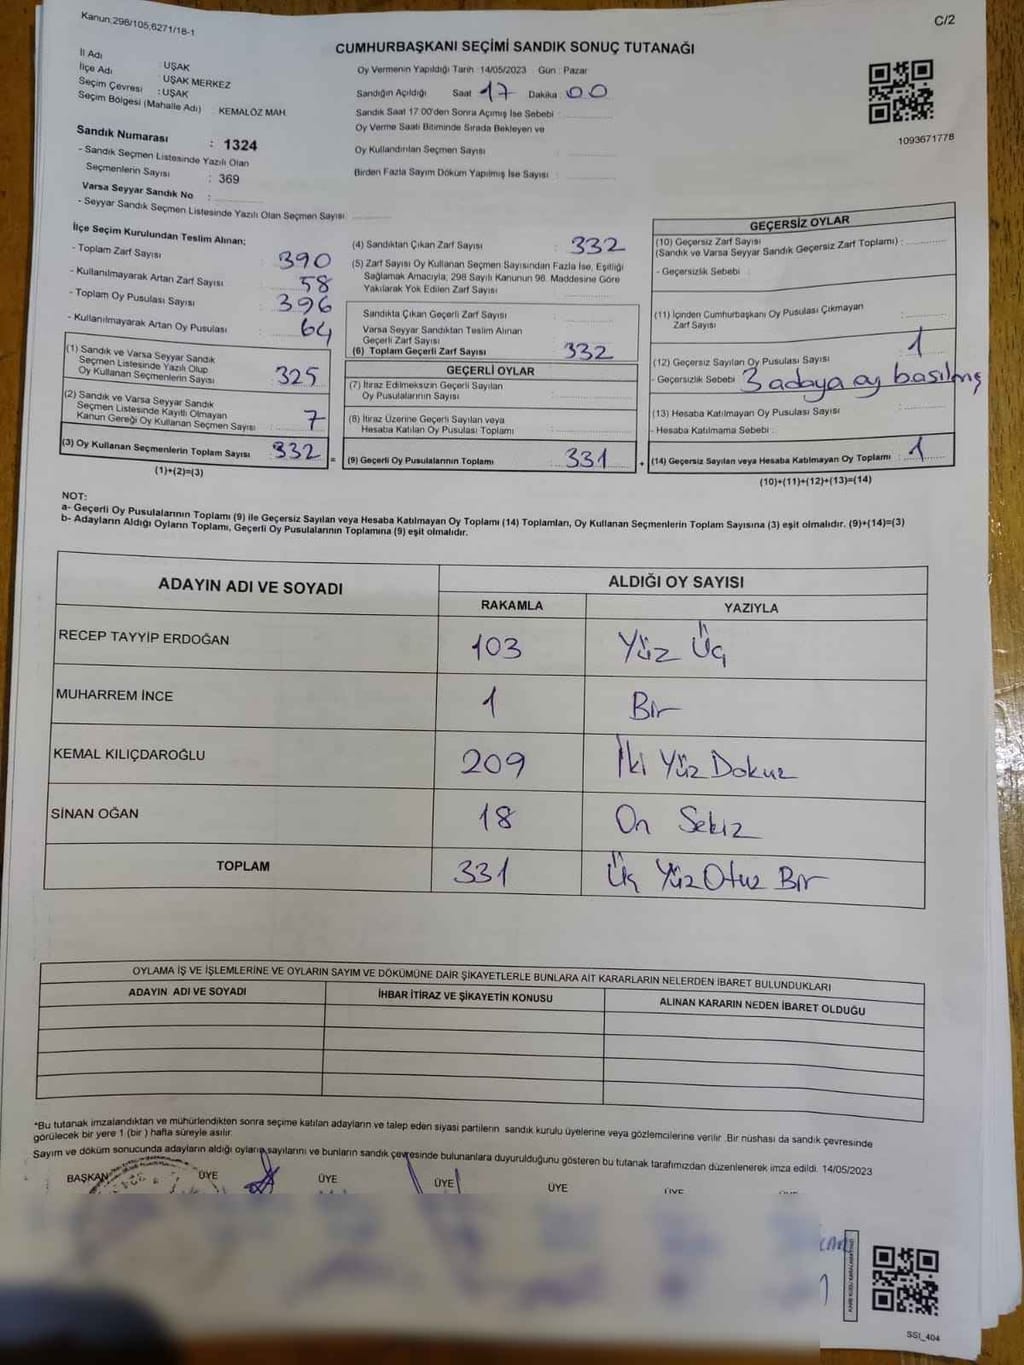 Kanun;298/105,6271/18-1
C/2
CUMHURBAŞKANI SEÇİMİ SANDIK SONUÇ TUTANAĞI
İl Adı : UŞAK
İlçe Adı : UŞAK MERKEZ
Seçim Çevresi : UŞAK
Seçim Bölgesi (Mahalle Adı) : KEMALÖZ MAH.
Sandık Numarası : 1324
- Sandık Seçmen Listesinde Yazılı Olan
Seçmenlerin Sayısı : 369
Varsa Seyyar Sandık No :
- Seyyar Sandık Seçmen Listesinde Yazılı Olan Seçmen Sayısı:
Oy Vermenin Yapıldığı Tarih :14/05/2023 Gün : Pazar
Sandığın Açıldığı Saat 17 Dakika : 00
Sandık Saat 17.00'den Sonra Açımış İse Sebebi :
Oy Verme Saati Bitiminde Sırada Bekleyen ve
Oy Kullandırılan Seçmen Sayısı :
Birden Fazla Sayım Döküm Yapılmış İse Sayısı :
1093671778
İlçe Seçim Kurulundan Teslim Alınan:
- Toplam Zarf Sayısı : 390
- Kullanılmayarak Artan Zarf Sayısı : 58
- Toplam Oy Pusulası Sayısı : 396
- Kullanılmayarak Artan Oy Pusulası : 64
(1) Sandık ve Varsa Seyyar Sandık
Seçmen Listesinde Yazılı Olup
Oy Kullanan Seçmenlerin Sayısı : 325
(2) Sandık ve Varsa Seyyar Sandık
Seçmen Listesinde Kayıtlı Olmayan
Kanun Gereği Oy Kullanan Seçmen Sayısı : 7
(3) Oy Kullanan Seçmenlerin Toplam Sayısı : 332
(1)+(2)=(3)
(4) Sandıktan Çıkan Zarf Sayısı : 332
(5) Zarf Sayısı Oy Kullanan Seçmen Sayısından Fazla İse, Eşitliği
Sağlamak Amacıyla, 298 Sayılı Kanunun 98. Maddesine Göre
Yakılarak Yok Edilen Zarf Sayısı :
Sandıkta Çıkan Geçerli Zarf Sayısı :
Varsa Seyyar Sandıktan Teslim Alınan
Geçerli Zarf Sayısı :
(6) Toplam Geçerli Zarf Sayısı : 332
GEÇERLİ OYLAR
(7) İtiraz Edilmeksizin Geçerli Sayılan
Oy Pusulalarının Sayısı :
(8) İtiraz Üzerine Geçerli Sayılan veya
Hesaba Katılan Oy Pusulası Toplamı :
= (9) Geçerli Oy Pusulalarının Toplamı : 331
GEÇERSİZ OYLAR
(10) Geçersiz Zarf Sayısı
(Sandık ve Varsa Seyyar Sandık Geçersiz Zarf Toplamı) :
- Geçersizlik Sebebi :
(11) İçinden Cumhurbaşkanı Oy Pusulası Çıkmayan
Zarf Sayısı :
(12) Geçersiz Sayılan Oy Pusulası Sayısı : 1
- Geçersizlik Sebebi : 3 adaya oy basılmış
(13) Hesaba Katılmayan Oy Pusulası Sayısı :
- Hesaba Katılmama Sebebi :
+ (14) Geçersiz Sayılan veya Hesaba Katılmayan Oy Toplamı : 1
(10)+(11)+(12)+(13)=(14)
NOT:
a- Geçerli Oy Pusulalarının Toplamı (9) ile Geçersiz Sayılan veya Hesaba Katılmayan Oy Toplamı (14) Toplamları, Oy Kullanan Seçmenlerin Toplam Sayısına (3) eşit olmalıdır. (9)+(14)=(3)
b- Adayların Aldığı Oyların Toplamı, Geçerli Oy Pusulalarının Toplamına (9) eşit olmalıdır.
ADAYIN ADI VE SOYADI ALDIĞI OY SAYISI
RAKAMLA YAZIYLA
RECEP TAYYİP ERDOĞAN 103 Yüz Üç
MUHARREM İNCE 1 Bir
KEMAL KILIÇDAROĞLU 209 İki Yüz Dokuz
SİNAN OĞAN 18 On Sekiz
TOPLAM 331 Üç Yüz Otuz Bir
OYLAMA İŞ VE İŞLEMLERİNE VE OYLARIN SAYIM VE DÖKÜMÜNE DAİR ŞİKAYETLERLE BUNLARA AİT KARARLARIN NELERDEN İBARET BULUNDUKLARI
ADAYIN ADI VE SOYADI İHBAR İTİRAZ VE ŞİKAYETİN KONUSU ALINAN KARARIN NEDEN İBARET OLDUĞU
*Bu tutanak imzalandıktan ve mühürlendikten sonra seçime katılan adayların ve talep eden siyasi partilerin sandık kurulu üyelerine veya gözlemcilerine verilir .Bir nüshası da sandık çevresinde
görülecek bir yere 1 (bir ) hafta süreyle asılır.
Sayım ve döküm sonucunda adayların aldığı oyların sayılarını ve bunların sandık çevresinde bulunanlara duyurulduğunu gösteren bu tutanak tarafımızdan düzenlenerek imza edildi. 14/05/2023
BAŞKAN ÜYE ÜYE ÜYE ÜYE ÜYE
SSI_404